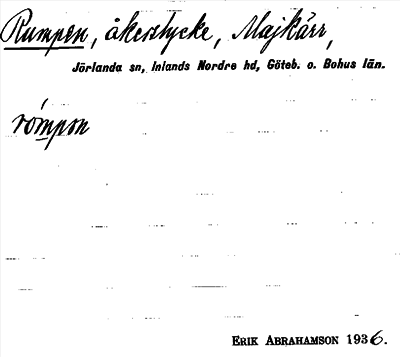 Rumpen, åkerstycke, Majkärr,
Jörlanda sn, Inlands Nordre hd, Göteb. o. Bohus län.
rómpon
ERIK ABRAHAMSON 1936.